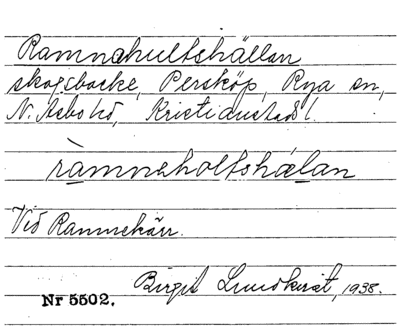 Ramnahultshällan
skogsbacke, Persköp, Rya sn,
N. Åsbo hd, Kristianstads l.
ràmnahol̄tshǽlan
Vid Ramnekärr.
Birgit Lundkvist, 1938.
Nr 5502.